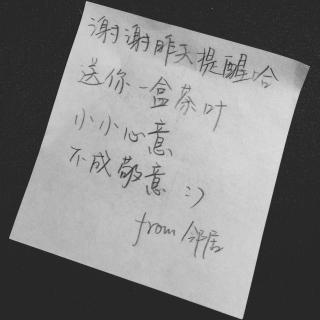 谢谢昨天提醒哈
送你一盒茶叶
小小心意
不成敬意 :)
from 邻居